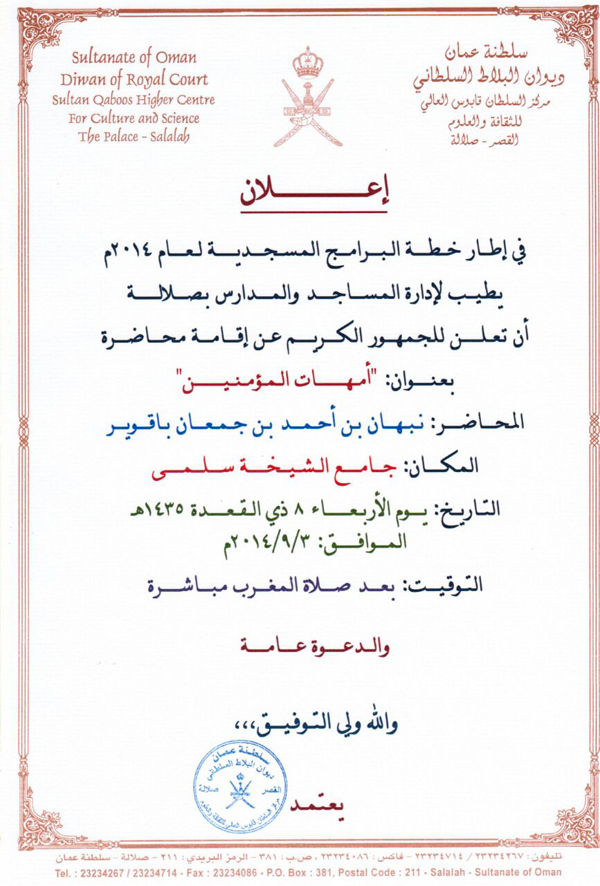 Sultanate of Oman
Diwan of Royal Court
Sultan Qaboos Higher Centre
For Culture and Science
The Palace - Salalah
سلطنة عمان
ديوان البلاط السلطاني
مركز السلطان قابوس العالي
للثقافة والعلوم
القصر - صلالة
إعلان
في إطار خطة البرامج المسجدية لعام ٢٠١٤م
يطيب لإدارة المساجد والمدارس بصلالة
أن تعلن للجمهور الكريم عن إقامة محاضرة
بعنوان: "أمهات المؤمنين"
المحاضر: نبهان بن أحمد بن جمعان باقوير
المكان: جامع الشيخة سلمى
التاريخ: يوم الأربعاء ٨ ذي القعدة ١٤٣٥هـ
الموافق: ٢٠١٤/٩/٣م
التوقيت: بعد صلاة المغرب مباشرة
والدعوة عامة
والله ولي التوفيق،،،
سلطنة عمان
ديوان البلاط السلطاني
القصر صلالة
مركز السلطان قابوس العالي للثقافة والعلوم
يعتمد
تليفون: ٢٣٢٣٤٢٦٧ / ٢٣٢٣٤٧١٤ - فاكس: ٢٣٢٣٤٠٨٦ ، ص.ب: ٣٨١ - الرمز البريدي: ٢١١ - صلالة - سلطنة عمان
Tel. : 23234267 / 23234714 - Fax : 23234086 - P.O. Box : 381, Postal Code : 211 - Salalah - Sultanate of Oman